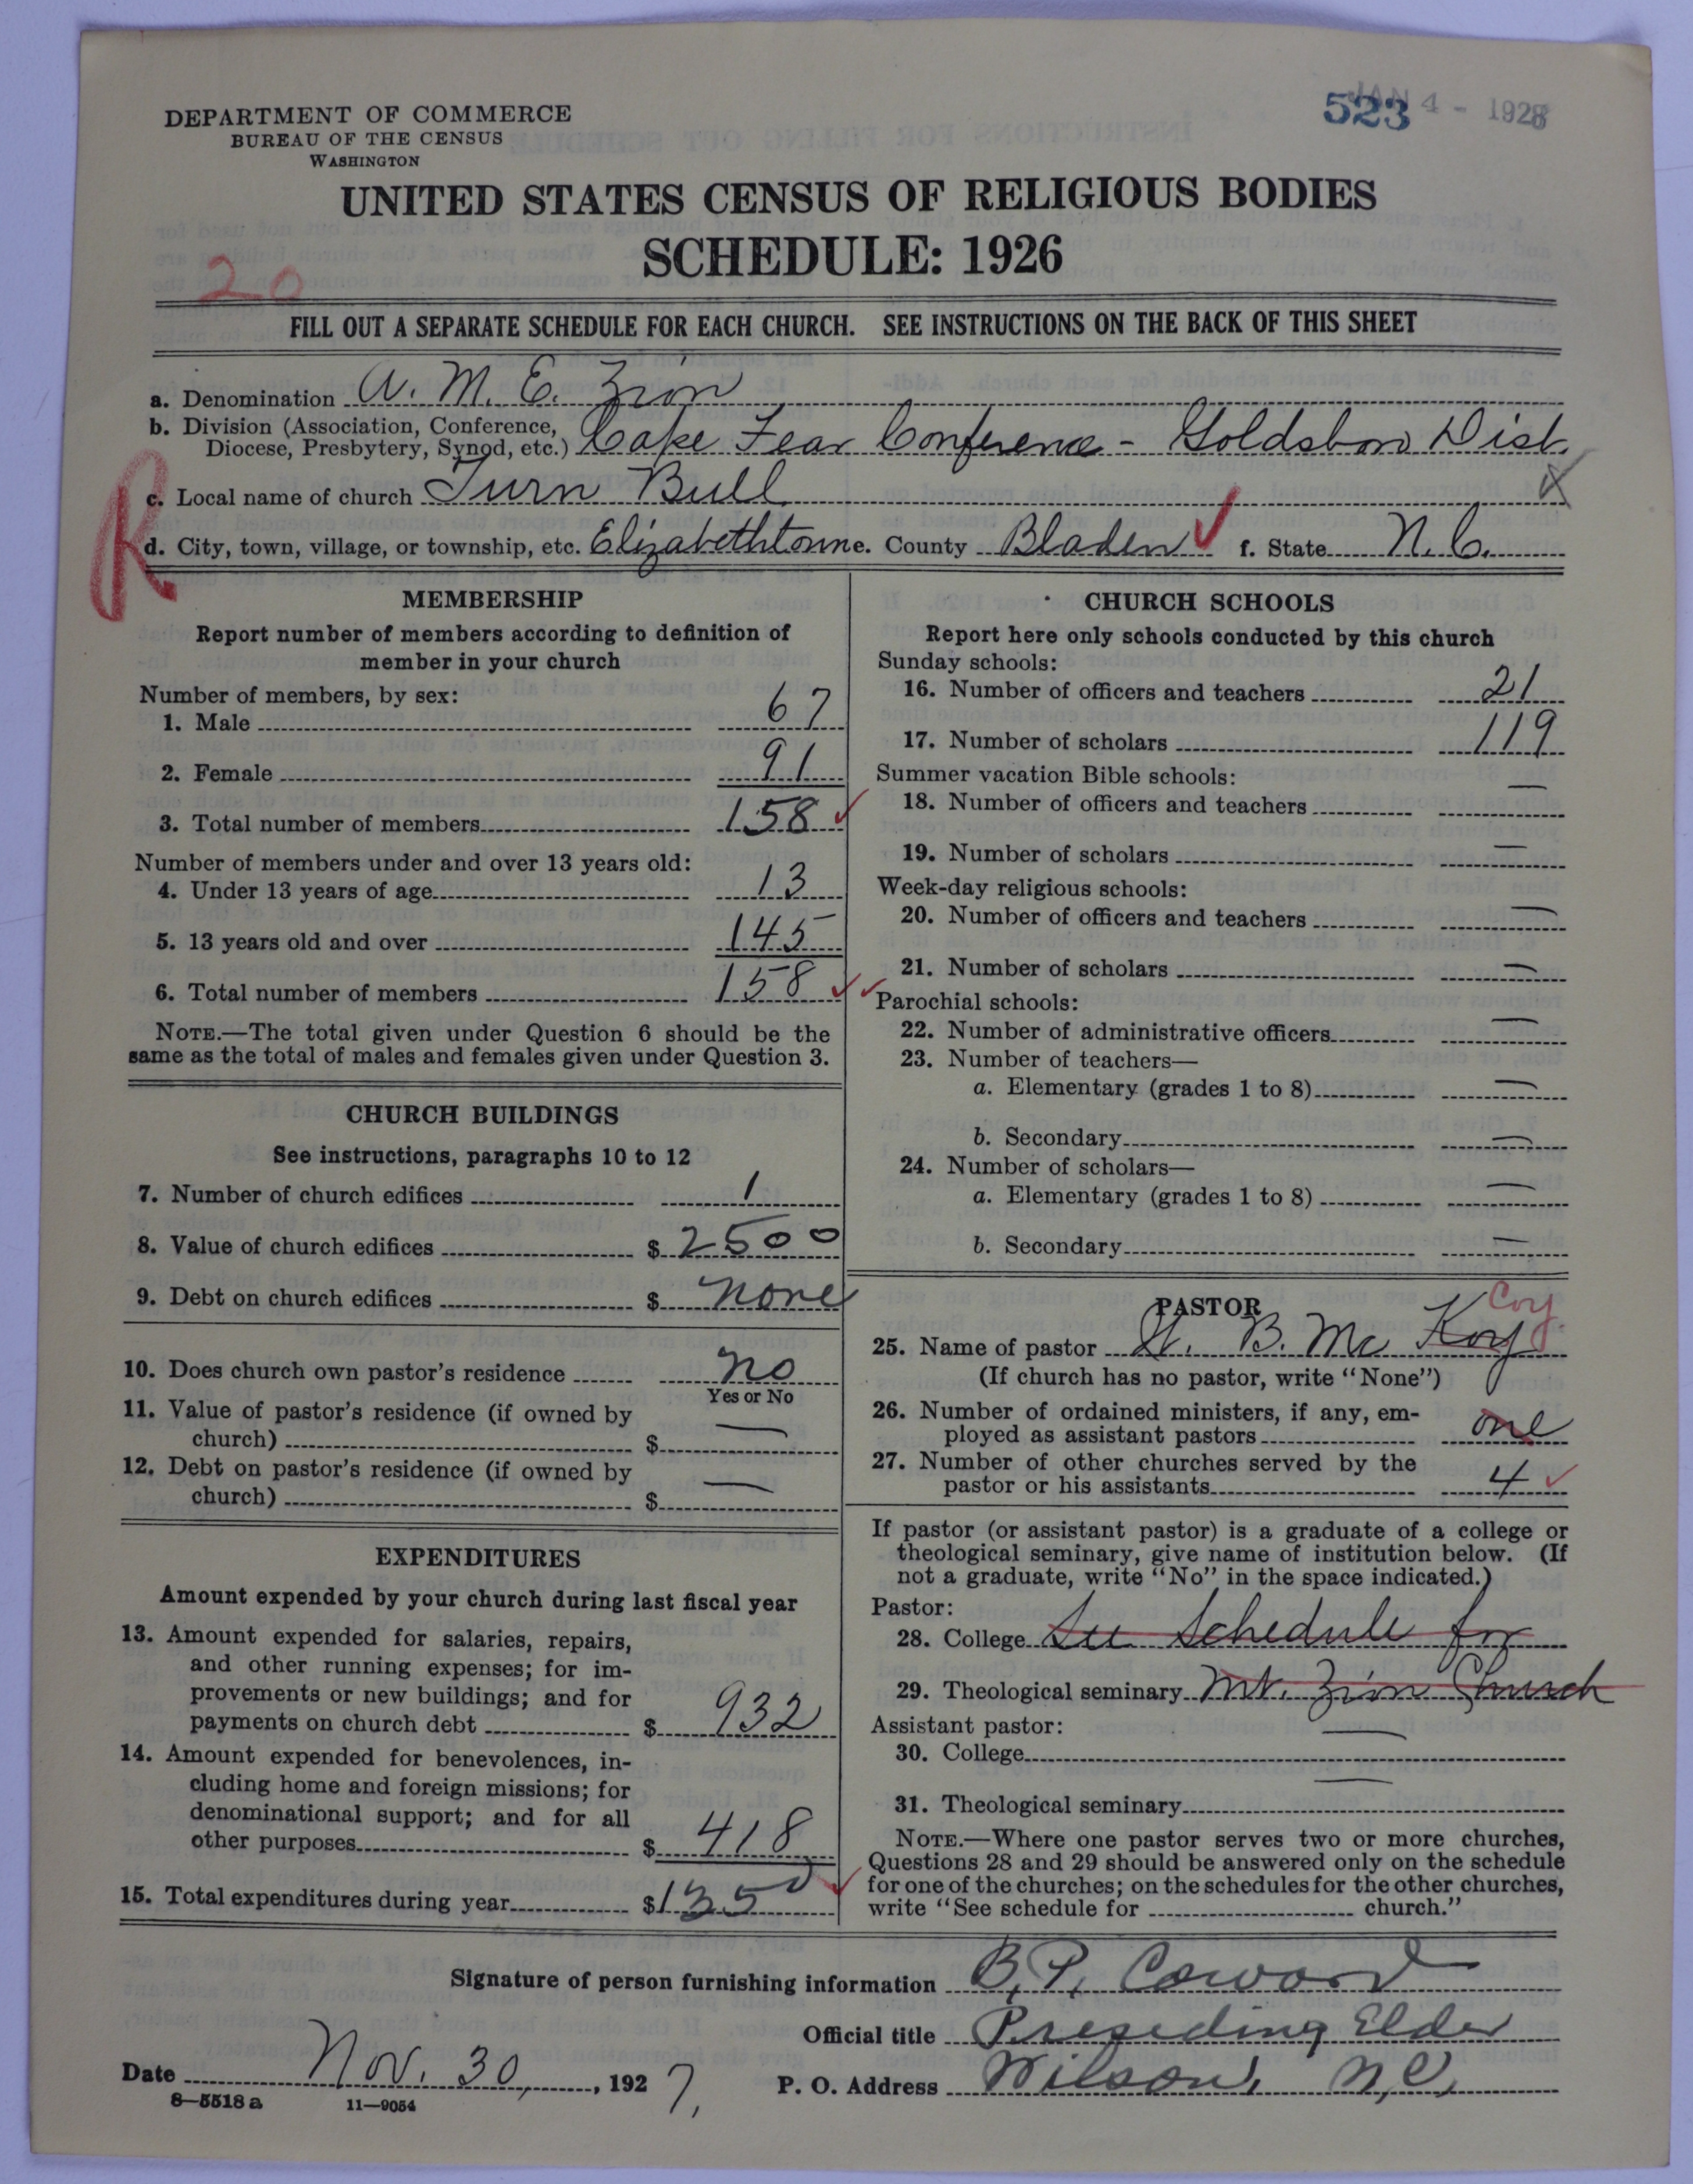 DEPARTMENT OF COMMERCE
BUREAU OF THE CENSUS
WASHINGTON
523
JAN 4 - 1928
UNITED STATES CENSUS OF RELIGIOUS BODIES
SCHEDULE: 1926
20
FILL OUT A SEPARATE SCHEDULE FOR EACH CHURCH. SEE INSTRUCTIONS ON THE BACK OF THIS SHEET
a. Denomination A. M. E. Zion
b. Division (Association, Conference,
Diocese, Presbytery, Synod, etc.) Cape Fear Conference - Goldsboro Dist.
c. Local name of church Turn Bull
R
d. City, town, village, or township, etc. Elizabethtown e. County Bladen f. State N. C.
MEMBERSHIP
Report number of members according to definition of
member in your church
Number of members, by sex:
1. Male 67
2. Female 91
3. Total number of members 158
Number of members under and over 13 years old:
4. Under 13 years of age 13
5. 13 years old and over 145
6. Total number of members 158
NOTE.—The total given under Question 6 should be the
same as the total of males and females given under Question 3.
CHURCH BUILDINGS
See instructions, paragraphs 10 to 12
7. Number of church edifices 1
8. Value of church edifices $ 2500
9. Debt on church edifices $ none
10. Does church own pastor's residence no
Yes or No
11. Value of pastor's residence (if owned by
church) $ —
12. Debt on pastor's residence (if owned by
church) $ —
EXPENDITURES
Amount expended by your church during last fiscal year
13. Amount expended for salaries, repairs,
and other running expenses; for im-
provements or new buildings; and for
payments on church debt $ 932
14. Amount expended for benevolences, in-
cluding home and foreign missions; for
denominational support; and for all
other purposes $ 418
15. Total expenditures during year $ 1350
CHURCH SCHOOLS
Report here only schools conducted by this church
Sunday schools:
16. Number of officers and teachers 21
17. Number of scholars 119
Summer vacation Bible schools:
18. Number of officers and teachers —
19. Number of scholars —
Week-day religious schools:
20. Number of officers and teachers —
21. Number of scholars —
Parochial schools:
22. Number of administrative officers —
23. Number of teachers—
a. Elementary (grades 1 to 8) —
b. Secondary —
24. Number of scholars—
a. Elementary (grades 1 to 8) —
b. Secondary —
PASTOR
Coy
25. Name of pastor B. Mc Koy
(If church has no pastor, write "None")
26. Number of ordained ministers, if any, em-
ployed as assistant pastors one
27. Number of other churches served by the
pastor or his assistants 4
If pastor (or assistant pastor) is a graduate of a college or
theological seminary, give name of institution below. (If
not a graduate, write "No" in the space indicated.)
Pastor:
28. College See Schedule for
29. Theological seminary Mt. Zion Church
Assistant pastor:
30. College —
31. Theological seminary —
NOTE.—Where one pastor serves two or more churches,
Questions 28 and 29 should be answered only on the schedule
for one of the churches; on the schedules for the other churches,
write "See schedule for church."
Signature of person furnishing information B. P. Coward
Official title Presiding Elder
Date Nov. 30, 1927, P. O. Address Wilson, N.C.
8—5518 a 11—9054